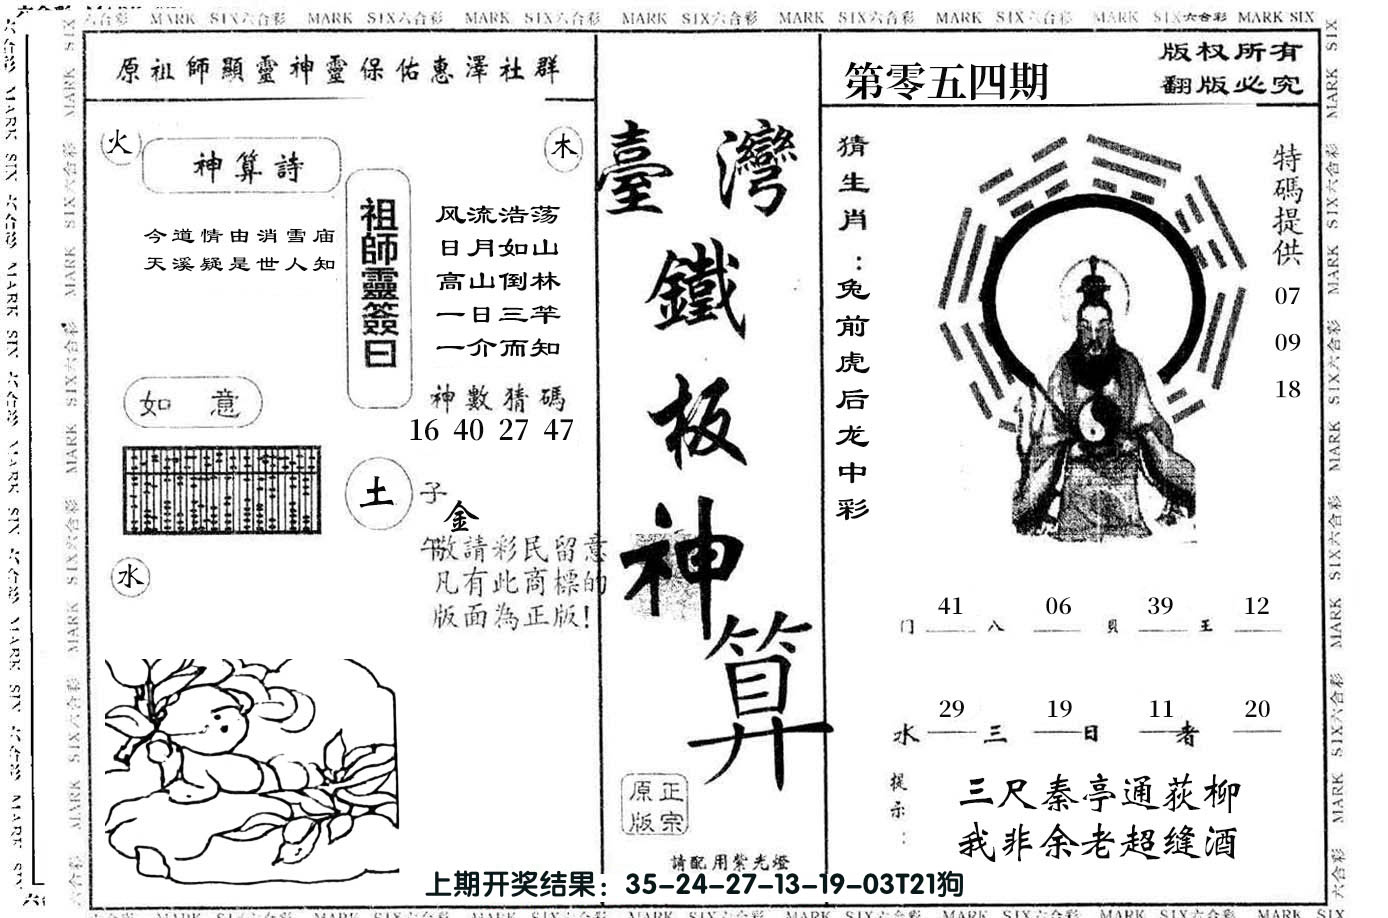 MARK SIX六合彩 MARK SIX六合彩 MARK SIX六合彩 MARK SIX六合彩 MARK SIX六合彩 MARK SIX六合彩 MARK SIX六合彩 MARK SIX
原祖師顯靈神靈保佑惠澤社群
火
神算詩
木
今道情由消雪庙
天溪疑是世人知
祖師靈簽曰
风流浩荡
日月如山
高山倒林
一日三竿
一介而知
神數猜碼
16 40 27 47
如意
土
子
金
午
敬請彩民留意
凡有此商標的
版面為正版!
水
臺灣
鐵
板
神
算
原正
版宗
請配用紫光燈
第零五四期
版权所有
翻版必究
猜生肖：兔前虎后龙中彩
特碼提供
07
09
18
门 41 八 06 貝 39 王 12
水 29 三 19 日 11 者 20
提示：
三尺秦亭通荻柳
我非余老超缝酒
上期开奖结果：35-24-27-13-19-03T21狗